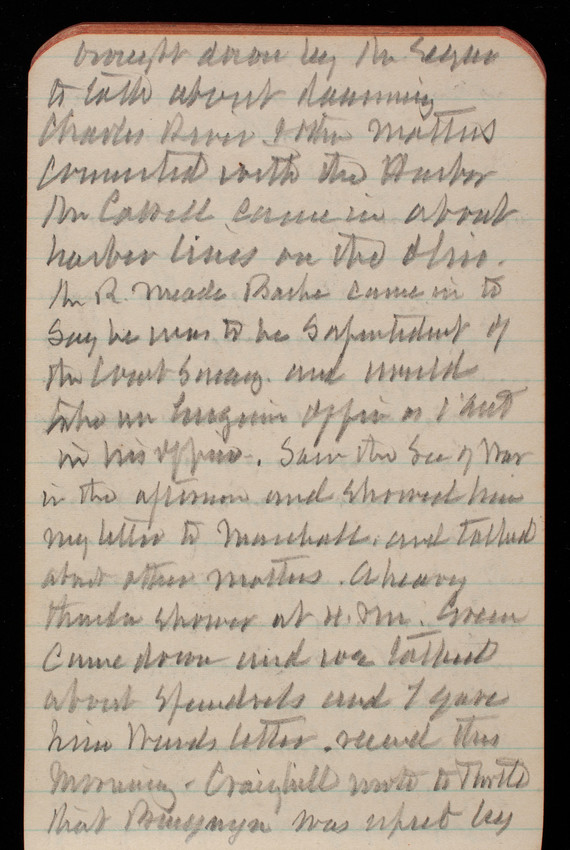 brought down by Mr
to talk about damming
Charles River & other matters
connected with the Harbor
Mr Caswell came in about
harbor lines on the Ohio.
Mr R. Meade Bache came in to
say he was to be Suptendent of
the Coast Survey and would
take an Engineer Officer as
in his office. Saw the Sec of War
in the afternoon and showed him
my letter to Marshall, and talked
about other matters. A heavy
thunder shower at 4. P.M. Green
came down and we talked
about Spandrels and I gave
him Wards letter. recevd this
morning - Craighill wrote to
that was upset by